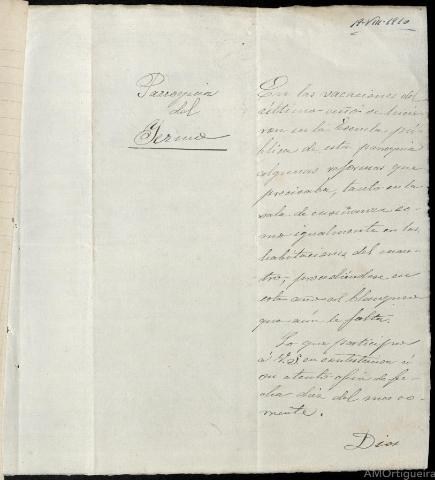 19-VIII-1910
Parroquia
del
Yermo
En las vacaciones del
último año se hicie
ron en la Escuela pú
blica de esta parroquia
algunas reformas que
precisaba, tanto en la
sala de enseñanza co
mo igualmente en las
habitaciones del maes
tro, procediéndose en
este año al blanqueo
que aún le falta.
Lo que participo
á V.S. en contestación á
su atento oficio de fe
cha diez del mes co
rriente.
Dios
AMOrtigueira